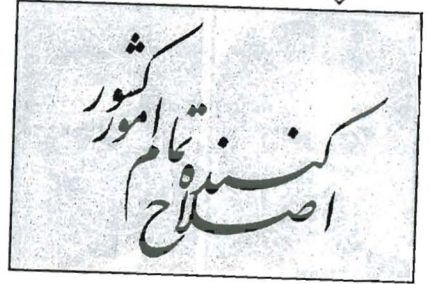 اصلاح کننده تمام امور کشور